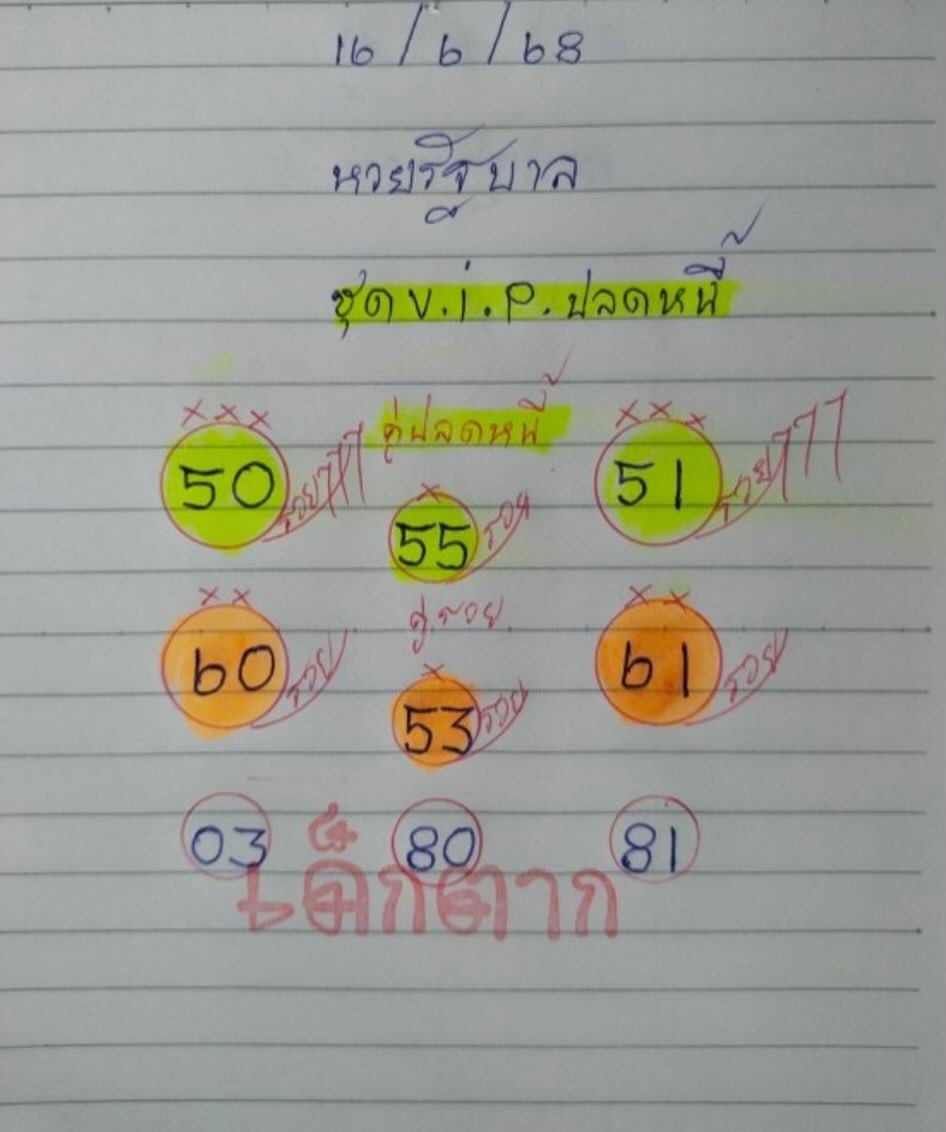 16/6/68
หวยรัฐบาล
ชุด V.i.P. ปลดหนี้
xxx คู่ปลดหนี้ xxx
50 รวยๆๆๆ 51 รวยๆๆๆ
x
55 รวย
xx คู่รวย xx
60 รวย 61 รวย
x
53 รวย
03 80 81
เด็กตาก